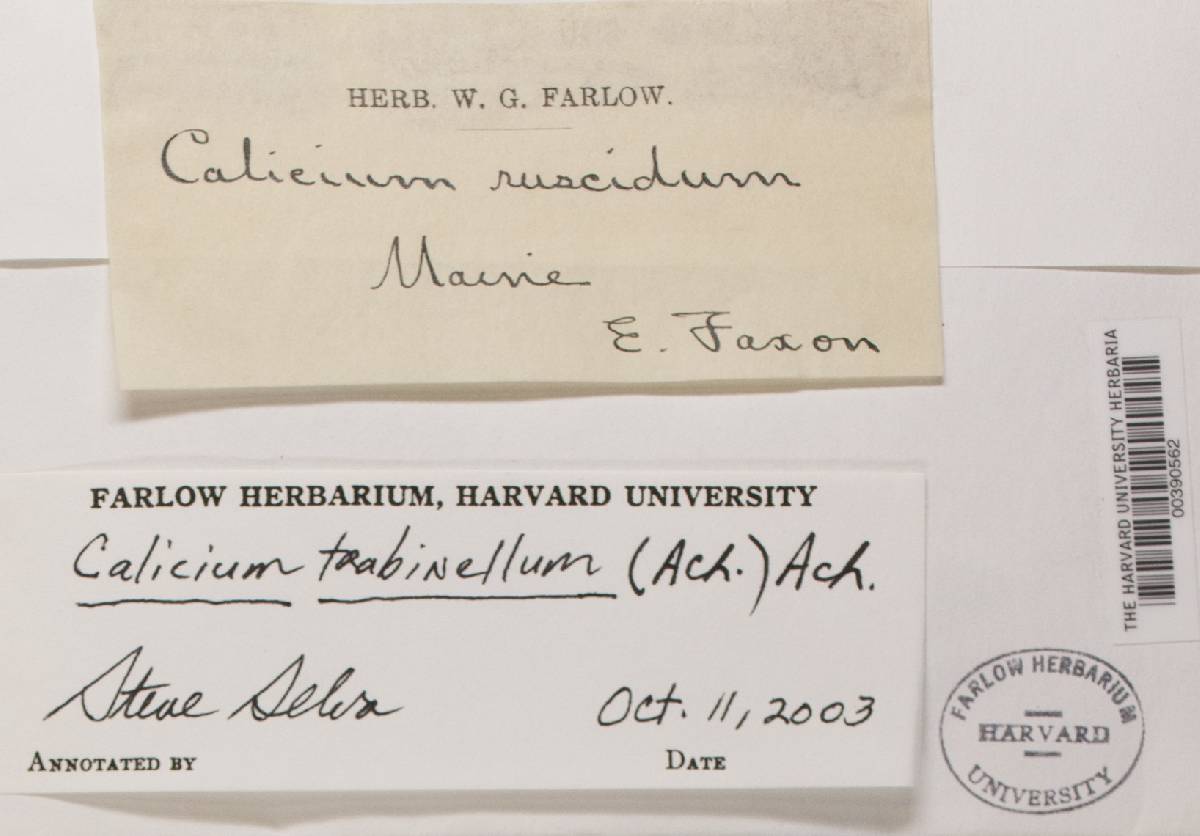 HERB. W. G. FARLOW.
Calicium ruscidum
Maine
E. Faxon
FARLOW HERBARIUM, HARVARD UNIVERSITY
Calicium trabinellum (Ach.) Ach.
Steve Selva
Oct. 11, 2003
ANNOTATED BY
DATE
THE HARVARD UNIVERSITY HERBARIA
00390562
FARLOW HERBARIUM
HARVARD
UNIVERSITY